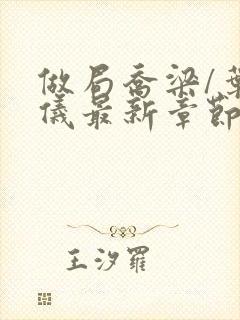 做局乔梁/葉
儀最新章節
王汐羅